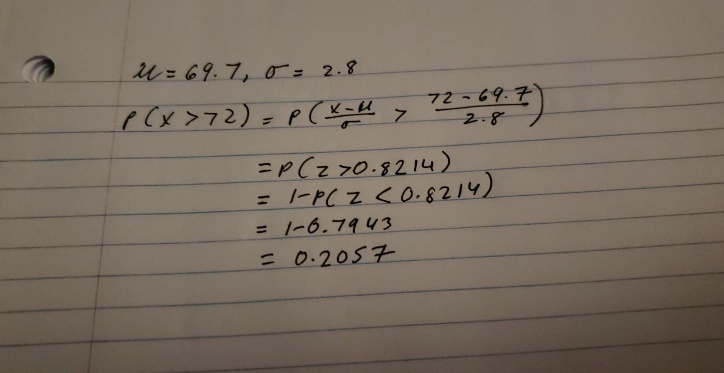 μ = 69.7, σ = 2.8
P(X > 72) = P(\frac{X-μ}{σ} > \frac{72-69.7}{2.8})
= P(Z > 0.8214)
= 1-P(Z < 0.8214)
= 1-0.7943
= 0.2057